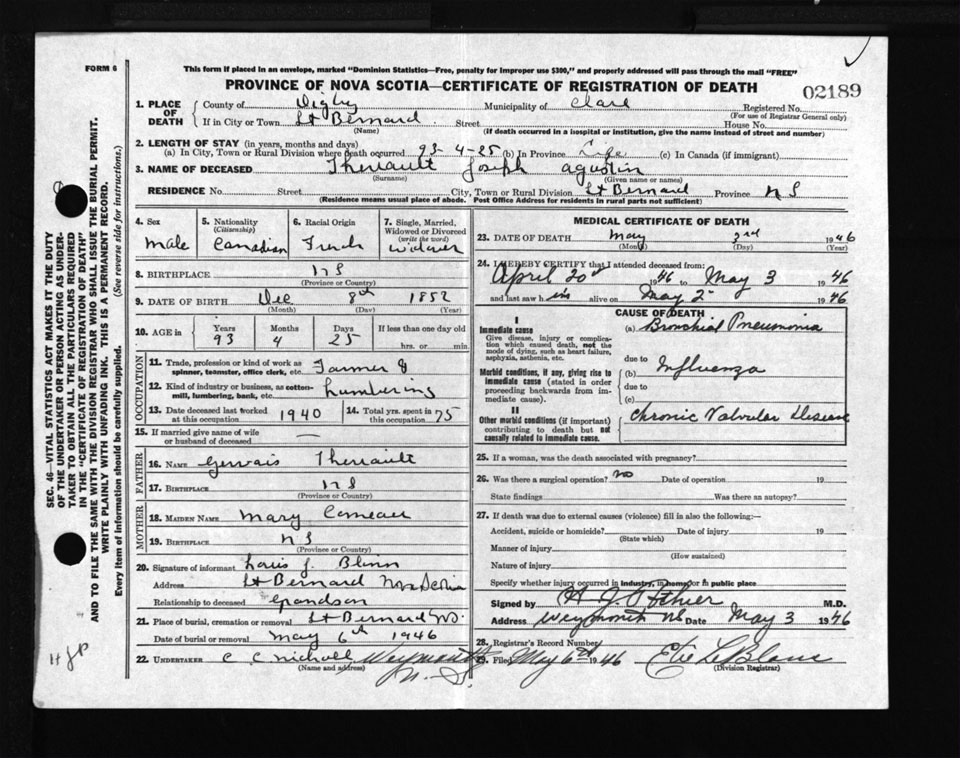 FORM 6
This form if placed in an envelope, marked "Dominion Statistics—Free, penalty for improper use $300," and properly addressed will pass through the mail "FREE"
PROVINCE OF NOVA SCOTIA—CERTIFICATE OF REGISTRATION OF DEATH
02189
1. PLACE OF DEATH { County of Digby Municipality of Clare Registered No.
(For use of Registrar General only)
If in City or Town St Bernard Street House No.
(Name) (If death occurred in a hospital or institution, give the name instead of street and number)
2. LENGTH OF STAY (in years, months and days)
(a) In City, Town or Rural Division where death occurred 93-4-25 (b) In Province Life (c) In Canada (if immigrant)
3. NAME OF DECEASED Theriault Joseph Agustin
(Surname) (Given name or names)
RESIDENCE No. Street City, Town or Rural Division St Bernard Province N S
(Residence means usual place of abode. Post Office Address for residents in rural parts not sufficient)
4. Sex 5. Nationality (Citizenship) 6. Racial Origin 7. Single, Married, Widowed or Divorced (write the word)
Male Canadian French Widower
8. BIRTHPLACE N S
(Province or Country)
9. DATE OF BIRTH Dec 8th 1852
(Month) (Day) (Year)
10. AGE in Years Months Days If less than one day old
93 4 25 hrs. or min.
OCCUPATION
11. Trade, profession or kind of work as spinner, teamster, office clerk, etc. Farmer &
12. Kind of industry or business, as cotton-mill, lumbering, bank, etc. Lumbering
13. Date deceased last worked at this occupation 1940 14. Total yrs. spent in this occupation 75
15. If married give name of wife or husband of deceased —
FATHER
16. NAME Gervais Theriault
17. BIRTHPLACE N S
(Province or Country)
MOTHER
18. MAIDEN NAME Mary Comeau
19. BIRTHPLACE N S
(Province or Country)
20. Signature of informant Louis J. Blinn
Address St Bernard Nova Scotia
Relationship to deceased Grandson
21. Place of burial, cremation or removal St Bernard NS.
Date of burial or removal May 6th 1946
22. UNDERTAKER C C Nicholl Weymouth N. S.
(Name and address)
MEDICAL CERTIFICATE OF DEATH
23. DATE OF DEATH May 3rd 1946
(Month) (Day) (Year)
24. I HEREBY CERTIFY that I attended deceased from:
April 30th 1946 to May 3 1946
and last saw him alive on May 2 1946
CAUSE OF DEATH
I
Immediate cause
Give disease, injury or complication which caused death, not the mode of dying, such as heart failure, asphyxia, asthenia, etc.
(a) Bronchial Pneumonia
due to
Morbid conditions, if any, giving rise to immediate cause (stated in order proceeding backwards from immediate cause).
(b) Influenza
due to
(c)
II
Other morbid conditions (if important) contributing to death but not causally related to immediate cause.
Chronic Valvular Disease
25. If a woman, was the death associated with pregnancy?
26. Was there a surgical operation? no Date of operation 19
State findings Was there an autopsy?
27. If death was due to external causes (violence) fill in also the following:—
Accident, suicide or homicide? Date of injury 19
(State which)
Manner of injury
(How sustained)
Nature of injury
Specify whether injury occurred in industry, in home, or in public place
Signed by M.D.
Address Weymouth NS Date May 3 1946
28. Registrar's Record Number
29. Filed May 6th 1946 Elie LeBlanc
(Division Registrar)
SEC. 46—VITAL STATISTICS ACT MAKES IT THE DUTY
OF THE UNDERTAKER OR PERSON ACTING AS UNDER-
TAKER TO OBTAIN ALL THE PARTICULARS REQUIRED
IN THE "CERTIFICATE OF REGISTRATION OF DEATH"
AND TO FILE THE SAME WITH THE DIVISION REGISTRAR WHO SHALL ISSUE THE BURIAL PERMIT.
WRITE PLAINLY WITH UNFADING INK. THIS IS A PERMANENT RECORD.
Every item of information should be carefully supplied. (See reverse side for instructions.)